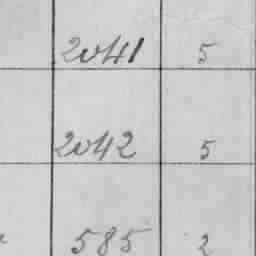 2041 5
2042 5
585 2